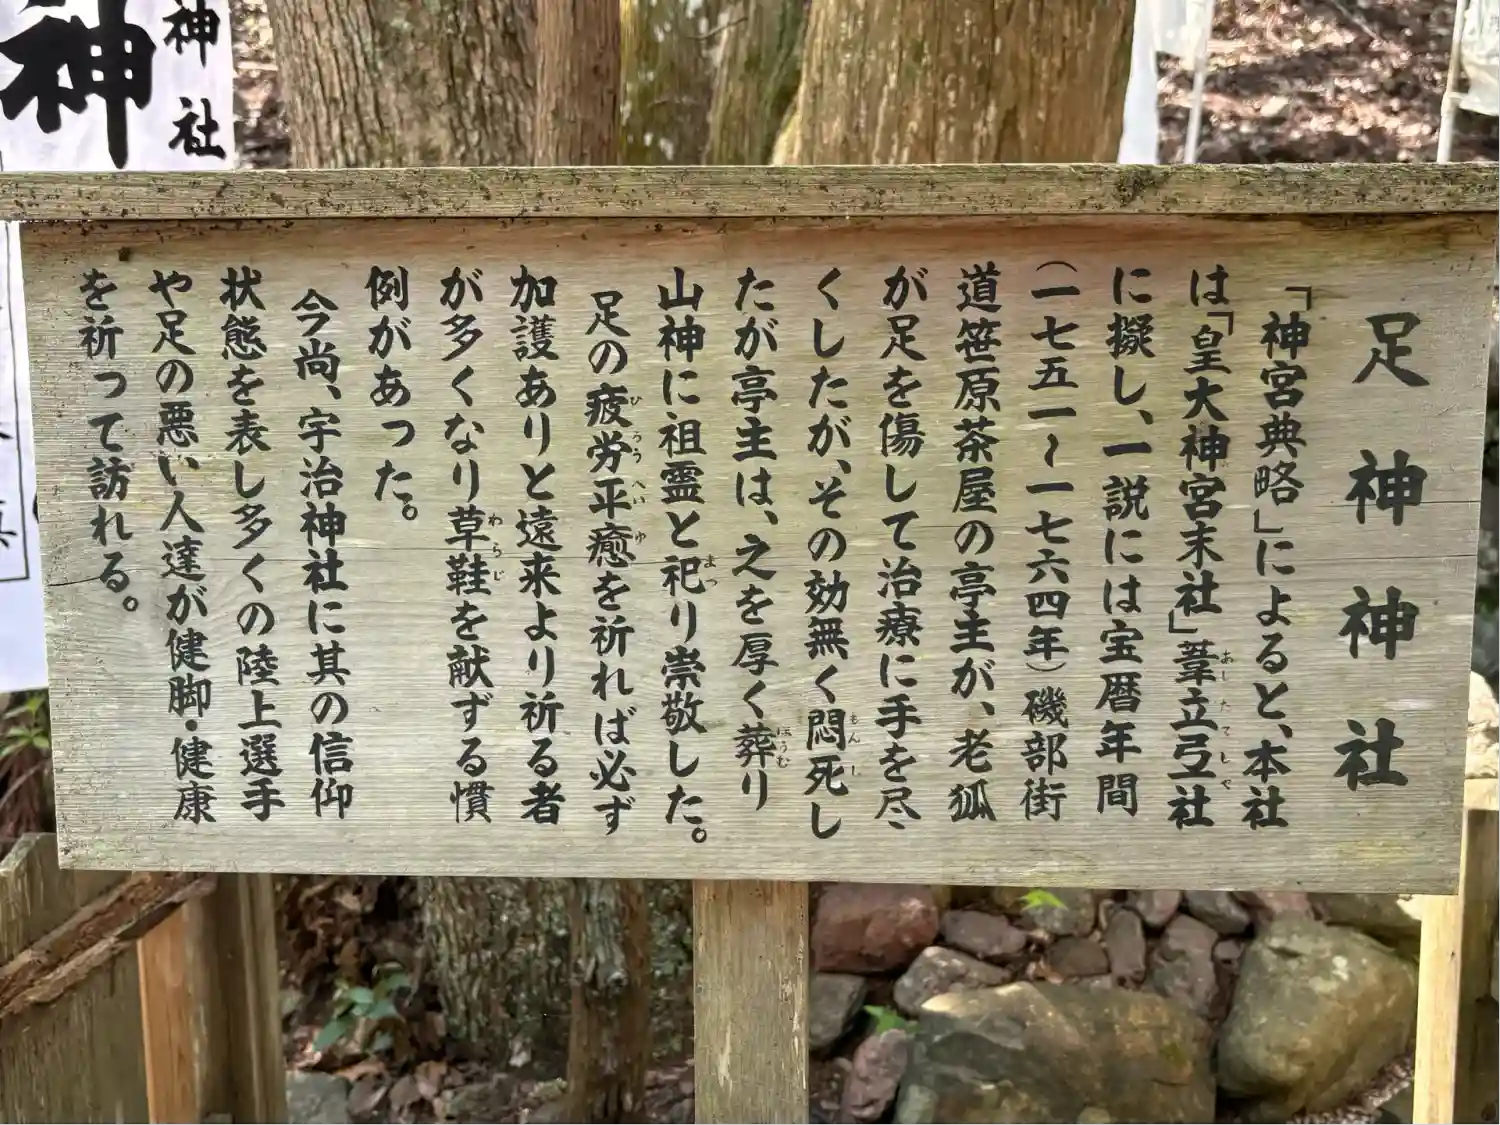 足神神社
「神宮典略」によると、本社
は「皇大神宮末社」葦立弓社
に擬し、一説には宝暦年間
(一七五一~一七六四年)磯部街
道笹原茶屋の亭主が、老狐
が足を傷して治療に手を尽
くしたが、その効無く悶死し
たが亭主は、之を厚く葬り
山神に祖霊と祀り崇敬した。
足の疲労平癒を祈れば必ず
加護ありと遠来より祈る者
が多くなり草鞋を献ずる慣
例があった。
今尚、宇治神社に其の信仰
状態を表し多くの陸上選手
や足の悪い人達が健脚・健康
を祈って訪れる。
神社
神